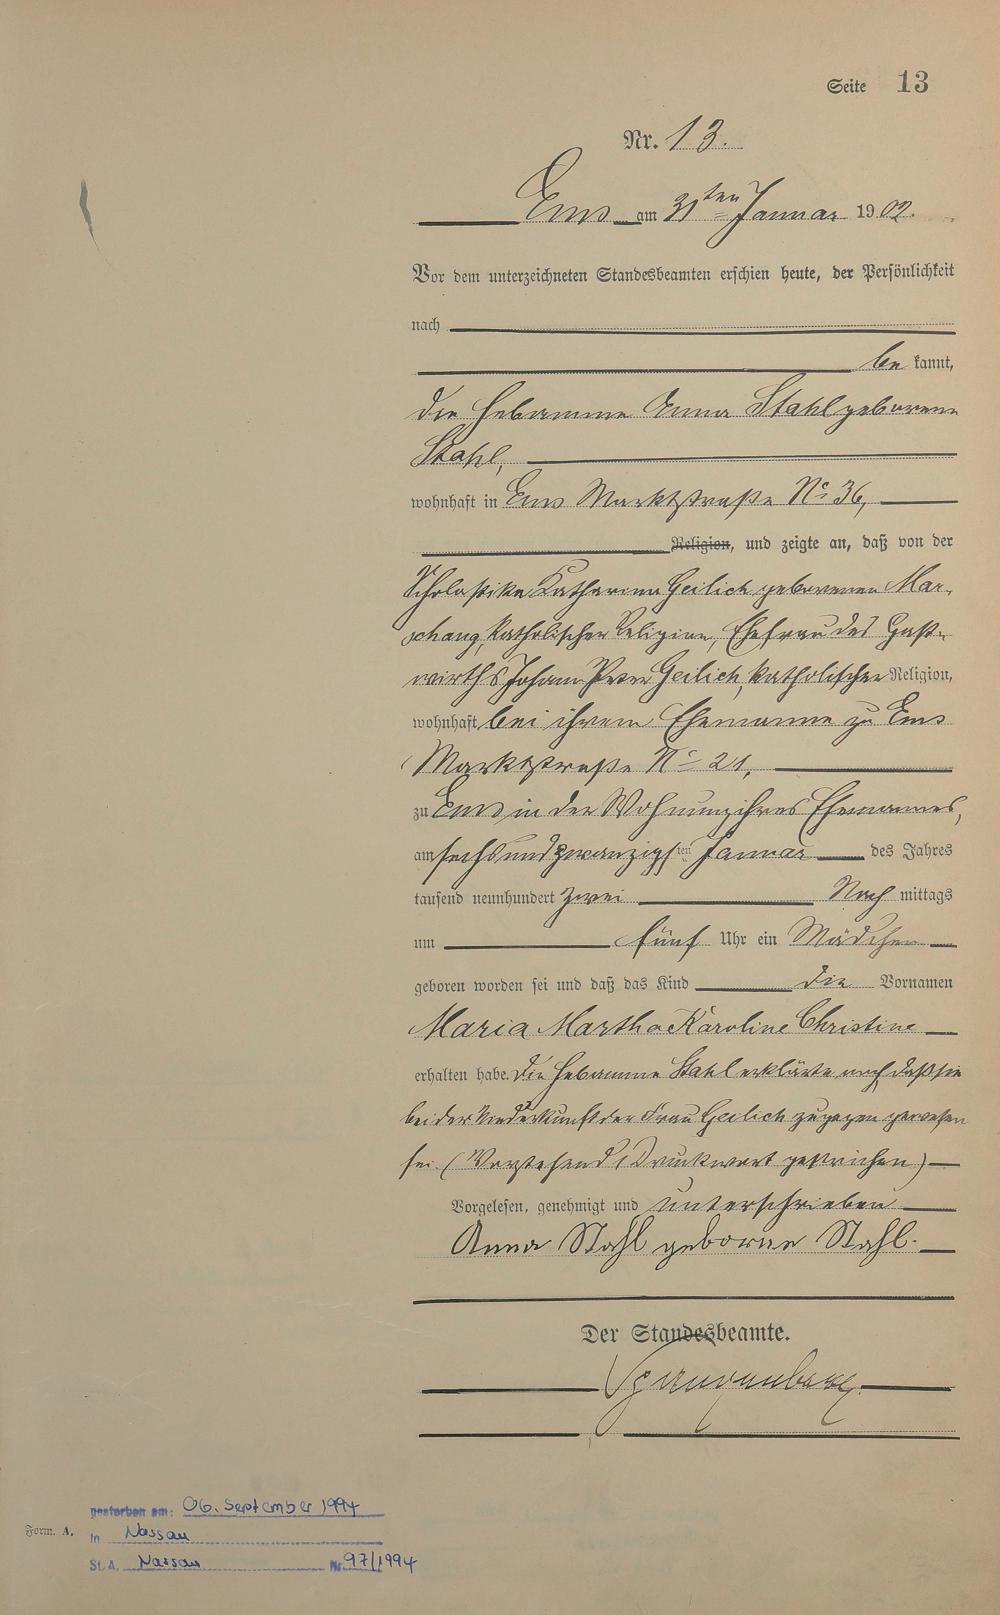 Seite 13
Nr. 13.
Ems am 31ten Januar 1902.
Vor dem unterzeichneten Standesbeamten erschien heute, der Persönlichkeit
nach
be kannt,
die Hebamme Anna Stahl geborene
Stahl,
wohnhaft in Ems Marktstraße No 36,
Religion, und zeigte an, daß von der
Scholastika Katharina Geilich geborenen Mar-
schang, katholischer Religion, Ehefrau des Gast-
wirths Johann Peter Geilich, katholischer Religion,
wohnhaft bei ihrem Ehemanne zu Ems
Marktstraße No 21,
zu Ems in der Wohnung ihres Ehemannes,
am sechs und zwanzigsten Januar des Jahres
tausend neunhundert zwei Nach mittags
um fünf Uhr ein Mädchen
geboren worden sei und daß das Kind die Vornamen
Maria Martha Karoline Christine
erhalten habe. Die Hebamme Stahl erklärte noch, daß sie
bei der Niederkunft der Frau Geilich zugegen gewesen
sei. (Vorstehend 1 Druckwort gestrichen)
Vorgelesen, genehmigt und unterschrieben
Anna Stahl geborne Stahl.
Der Standesbeamte.
Spangenberg
gestorben am: 06. September 1994
Form. A.
in Nassau
St.A. Nassau Nr. 97/1994